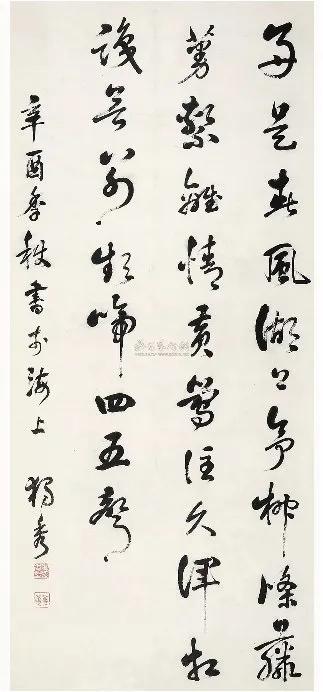 好是春風湖上亭柳條藤
蔓繫離情黃鶯住久渾相
識欲別頻啼四五聲
辛酉季秋書於海上 獨秀